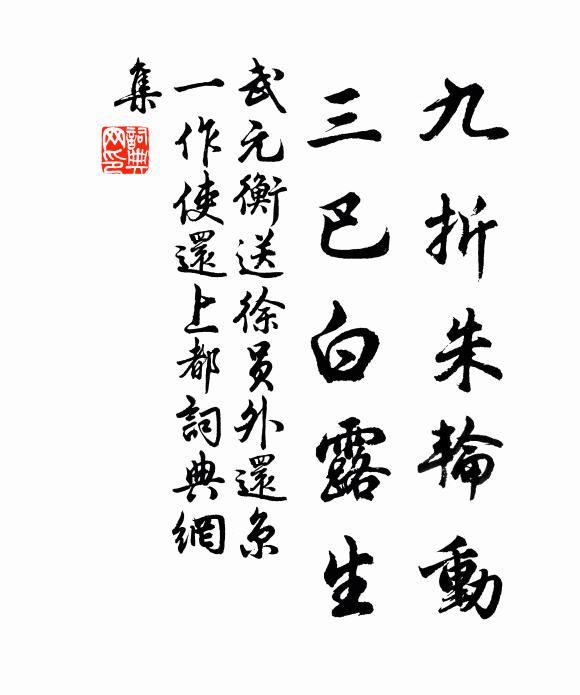 九折朱輪動
三巴白露生
武元衡送徐員外還京
一作使還上都詞典網
集
詞典网印